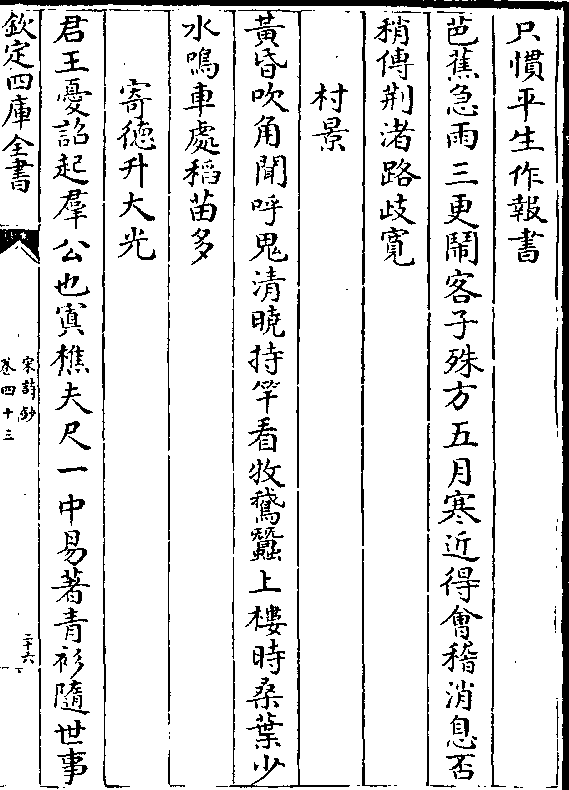 只慣平生作報書
芭蕉急雨三更鬧客子殊方五月寒近得會稽消息否
稍傳荆渚路歧寬
村景
黃昏吹角聞呼鬼清曉持竿看牧鵞蠶上樓時桑葉少
水鳴車處稻苗多
寄德升大光
君王憂詔起羣公也寘樵夫尺一中易著青衫隨世事
欽定四庫全書
宋詩鈔
卷四十三
二十六